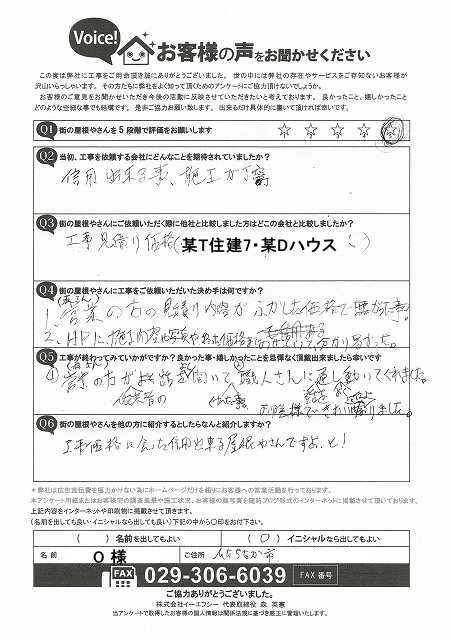 Voice! お客様の声をお聞かせください
この度は弊社に工事をご用命頂き誠にありがとうございました。 世の中には弊社の存在やサービスをご存知ないお客様が
沢山いらっしゃいます。 その方たちに弊社をよく知って頂くためのアンケートにご協力頂けないでしょうか。
お客様のご意見をお聞かせいただき今後の活動に反映させていただきたいと考えております。 良かったこと、嬉しかったこと
どのような些細な事でも結構です。 是非ご協力お願い致します。 出来るだけ具体的に書いて頂ければ幸いです。
Q1 街の屋根やさんを5段階で評価をお願いします ☆ ☆ ☆ ☆ ☆
Q2 当初、工事を依頼する会社にどんなことを期待されていましたか?
信用出来る事、施工が丁寧
Q3 街の屋根やさんにご依頼いただく際に他社と比較しました方はどこの会社と比較しましたか?
工事見積り価格(某T住建7・某Dハウス )
Q4 街の屋根やさんに工事をご依頼いただいた決め手は何ですか?
1. 営業の方の見積り内容が
2. HPに施工内容 写真や 価格
Q5 工事が終わってみていかがですか? 良かった事・嬉しかったことを忌憚なく頂戴出来ましたら幸いです
① 営業の方が 聞いて 職人さんに通し動いてくれました。
お陰様できれい
Q6 街の屋根やさんを他の方に紹介するとしたらなんと紹介しますか?
工事価格に合った信用出来る屋根やさんですよ、と!
*弊社は広告宣伝費を極力かけない為にホームページだけを頼りにお客様への営業活動を行っております。
*本アンケート用紙またはお客様宅の調査風景や施工状況、お客様の顔写真を随時ブログ形式のインターネットに掲載させて頂いております。
上記内容をインターネットや印刷物に掲載させて頂きます。
(名前を出しても良い・イニシャルなら出しても良い) 下記の中から○印をお付下さい。
( ) 名前を出してもよい ( ○ ) イニシャルなら出してもよい
名 前 O 様 ご住所 ひたちなか市
FAX 029-306-6039 FAX 番号
ご協力ありがとうございました。
株式会社イーエフシー 代表取締役 森 英憲
当アンケートで取得したお客様の個人情報は関係法規に基づき厳正に管理いたします。